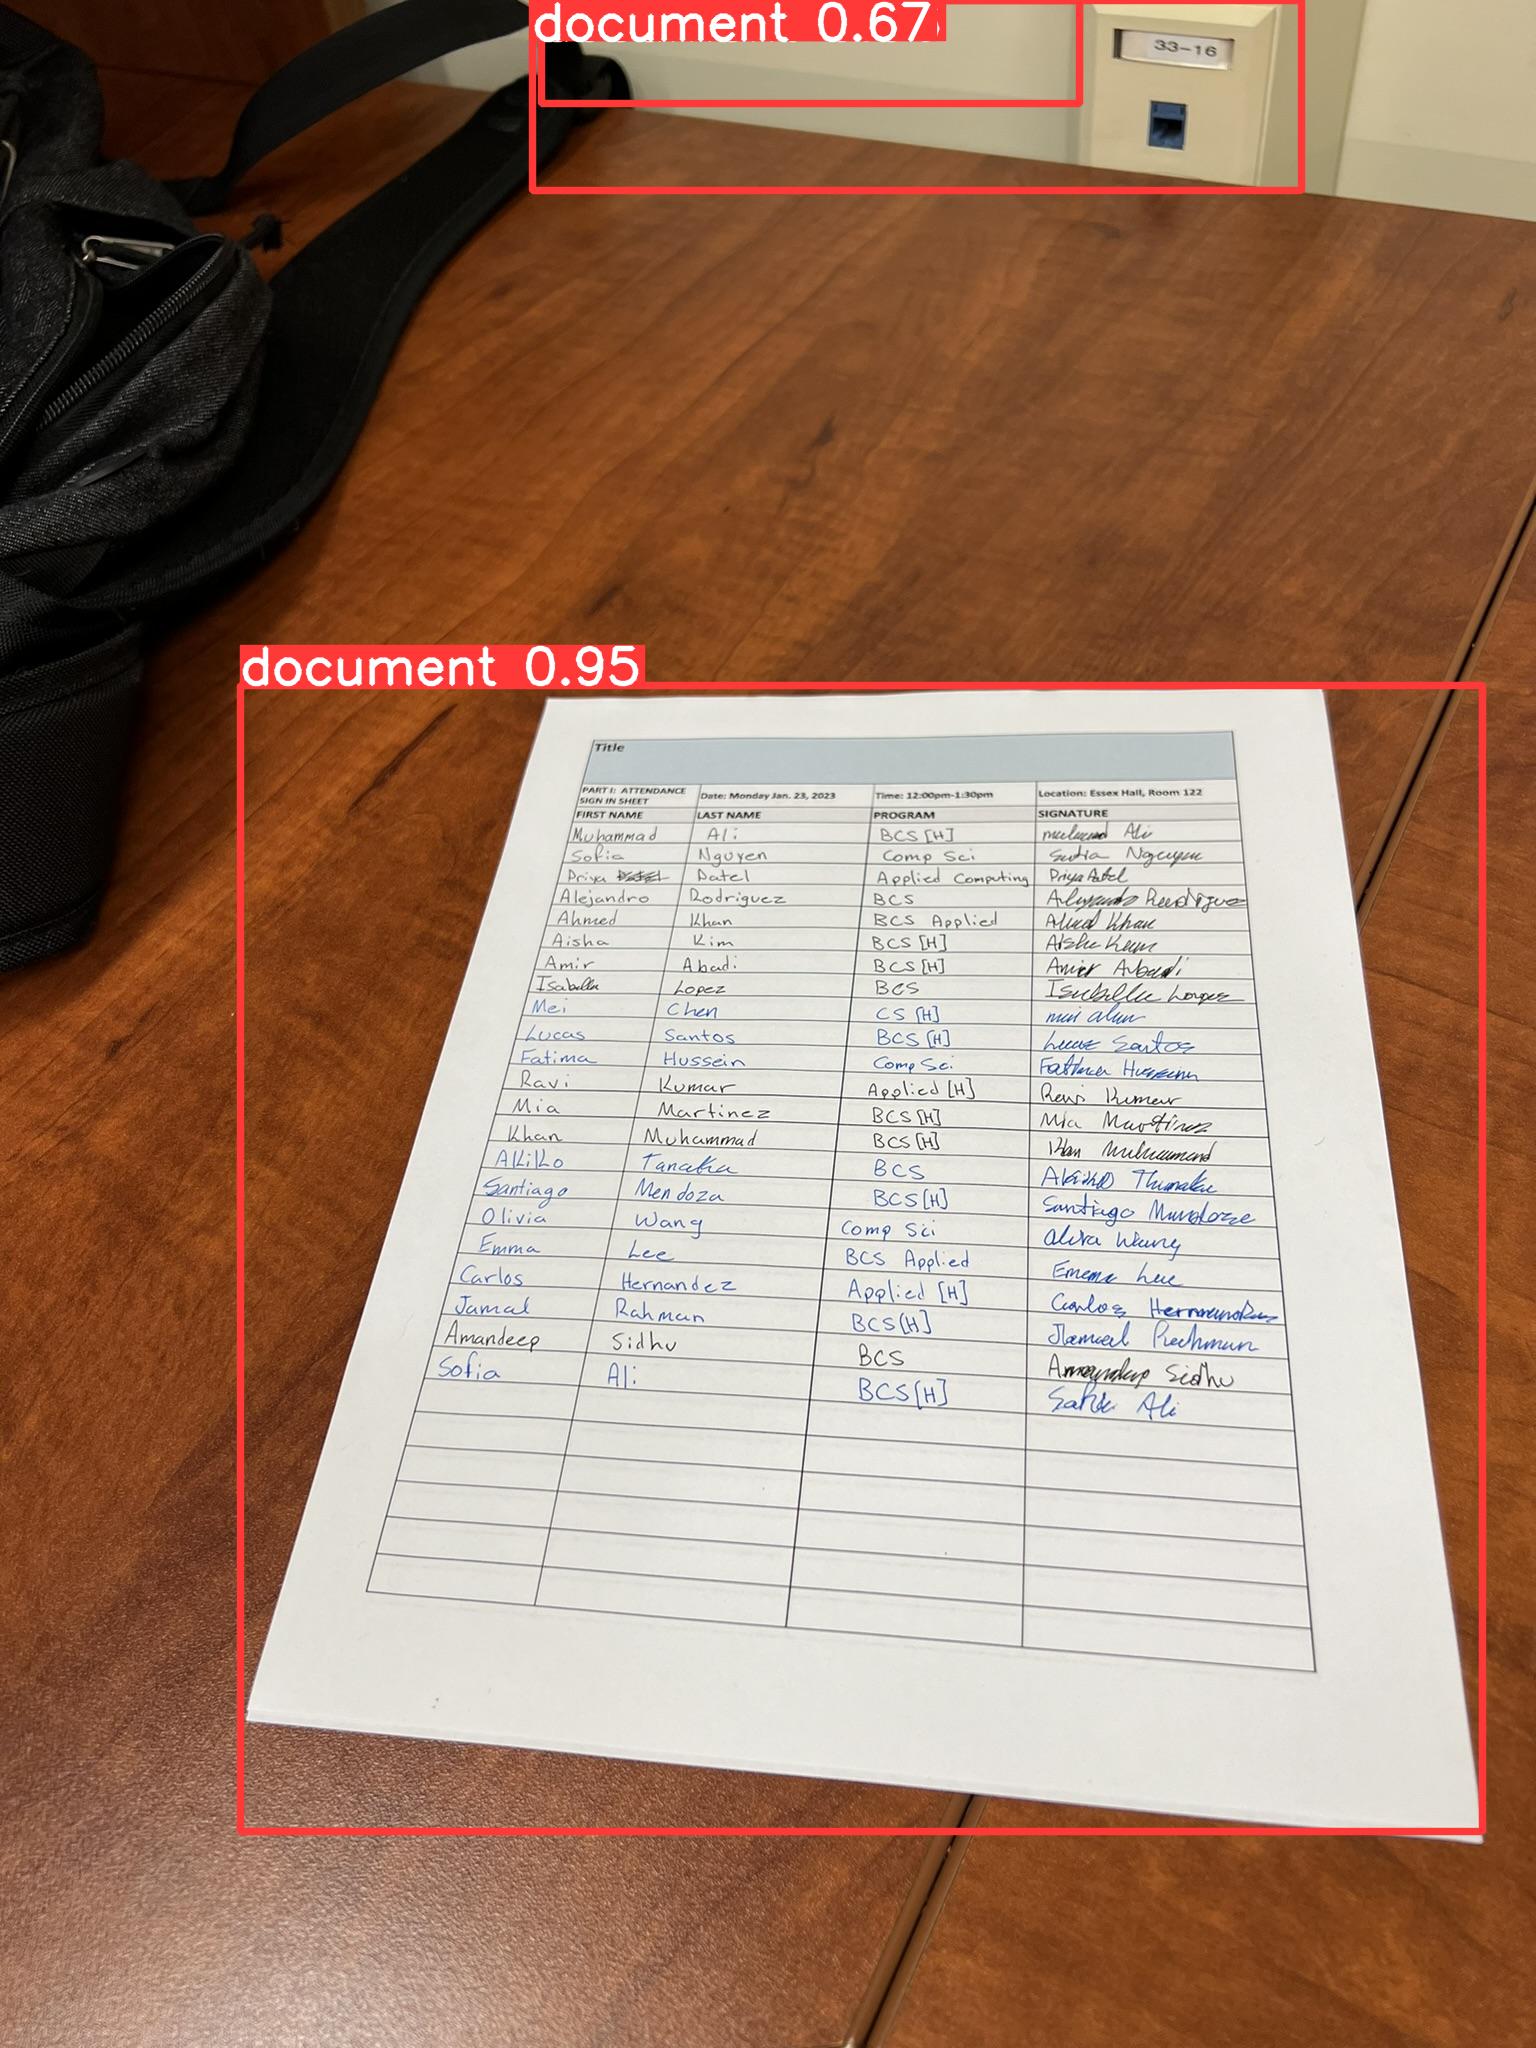 document 0.67
33-16
document 0.95
Title
PART I: ATTENDANCE SIGN IN SHEET Date: Monday Jan. 23, 2023 Time: 12:00pm-1:30pm Location: Essex Hall, Room 122
FIRST NAME LAST NAME PROGRAM SIGNATURE
Muhammad Ali BCS [H] Ali
Sofia Nguyen Comp Sci Nguyen
Priya Patel Applied Computing Priya Patel
Alejandro Rodriguez BCS Alejandro Rodriguez
Ahmed Khan BCS Applied Ahmed Khan
Aisha Kim BCS [H] Aisha Kim
Amir Abadi BCS [H] Amir Abadi
Isabella Lopez BCS Isabella Lopez
Mei Chen CS [H]
Lucas Santos BCS [H] Lucas Santos
Fatima Hussein Comp Sci Fatima Hussein
Ravi Kumar Applied [H] Ravi Kumar
Mia Martinez BCS [H] Mia Martinez
Khan Muhammad BCS [H] Khan Muhammad
Akiko Tanaka BCS Akiko
Santiago Mendoza BCS [H] Santiago Mendoza
Olivia Wang Comp Sci Wang
Emma Lee BCS Applied Emma Lee
Carlos Hernandez Applied [H] Carlos Hernandez
Jamal Rahman BCS [H] Jamal Rahman
Amandeep Sidhu BCS Amandeep Sidhu
Sofia Ali BCS [H] Ali